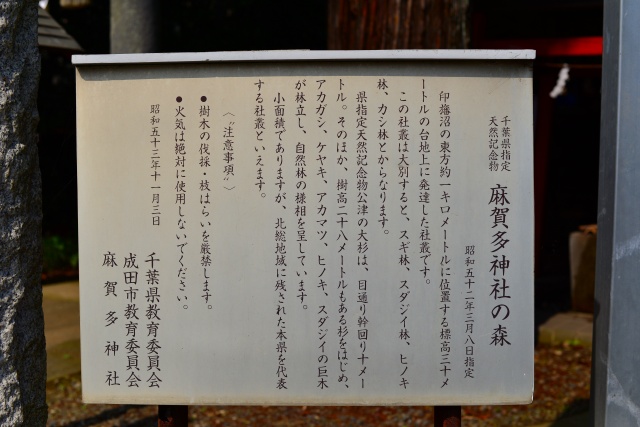 千葉県指定
天然記念物
麻賀多神社の森
昭和五十二年三月八日指定
印旛沼の東方約一キロメートルに位置する標高三十メ
ートルの台地上に発達した社叢です。
この社叢は大別すると、スギ林、スダジイ林、ヒノキ
林、カシ林とからなります。
県指定天然記念物公津の大杉は、目通り幹回り十メー
トル。そのほか、樹高二十八メートルもある杉をはじめ、
アカガシ、ケヤキ、アカマツ、ヒノキ、スダジイの巨木
が林立し、自然林の様相を呈しています。
小面積でありますが、北総地域に残された本県を代表
する社叢といえます。
〈〝注意事項〟〉
●樹木の伐採・枝はらいを厳禁します。
●火気は絶対に使用しないでください。
昭和五十三年十一月三日
千葉県教育委員会
成田市教育委員会
麻賀多神社